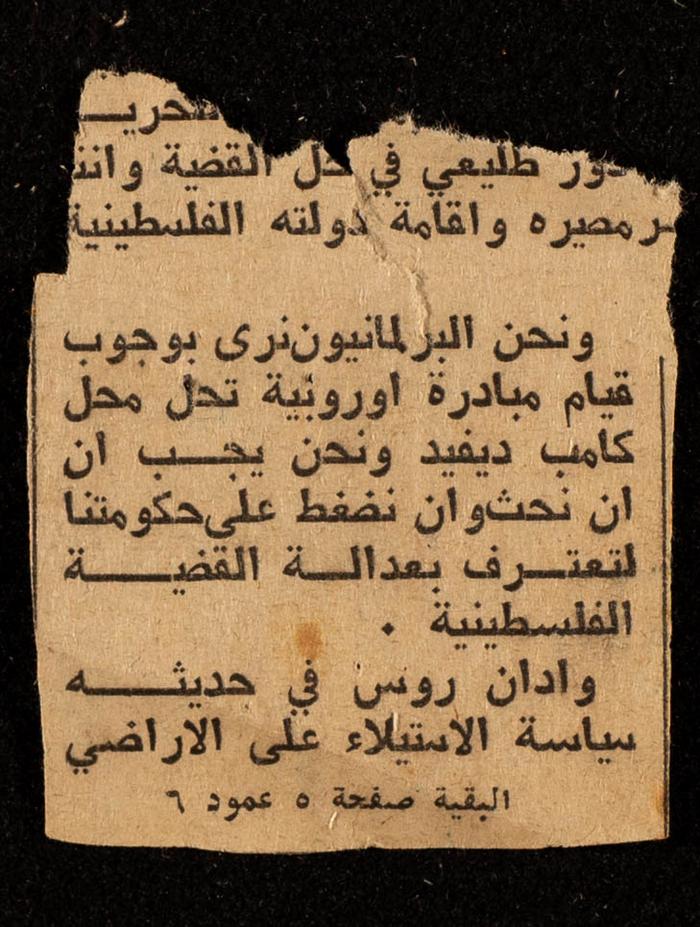 دور طليعي في حل القضية واننا
مصيره واقامة دولته الفلسطينية
ونحن البرلمانيون نرى بوجوب
قيام مبادرة اوروبية تحل محل
كامب ديفيد ونحن يجب ان
ان نحث وان نضغط على حكومتنا
لتعترف بعدالة القضية
الفلسطينية .
وادان روس في حديثه
سياسة الاستيلاء على الاراضي
البقية صفحة ٥ عمود ٦